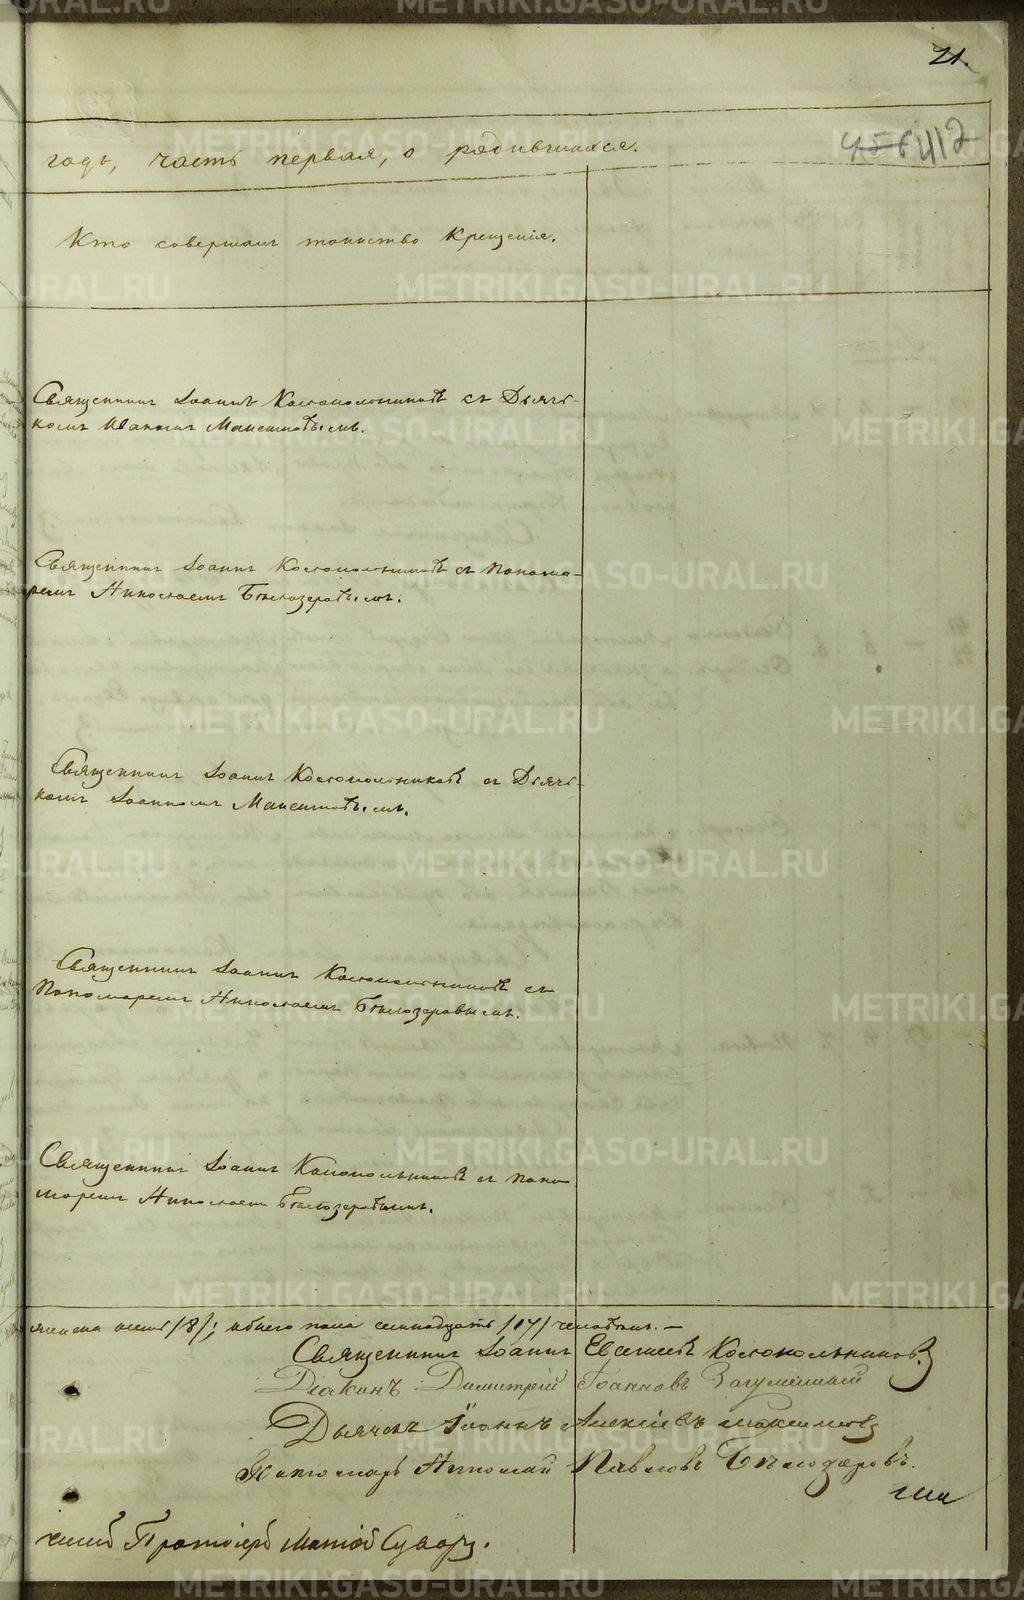 21.
456 412
годъ, часть первая, о родившихся.
Кто совершалъ таинство крещенія.
Священникъ Іоаннъ Колокольниковъ съ Дьячь-
комъ Иваномъ Максимовымъ.
Священникъ Іоаннъ Колокольниковъ съ Понома-
ремъ Николаемъ Бѣлозеровымъ.
Священникъ Іоаннъ Колокольниковъ съ Дьячь-
комъ Іоанномъ Максимовымъ.
Священникъ Іоаннъ Колокольниковъ съ
Пономаремъ Николаемъ Бѣлозеровымъ.
Священникъ Іоаннъ Колокольниковъ съ поно-
маремъ Николаемъ Бѣлозеровымъ.
женска осмь /8/; обоего пола семнадцать /17/ человѣкъ. —
Священникъ Іоаннъ Евгеніевъ Колокольниковъ
Діаконъ Димитрій Іоанновъ
Дьячекъ Іоаннъ Алексіевъ Максимовъ
Пономарь Николай Павловъ Бѣлозеровъ.
чинный Протоіерей
METRIKI.GASO-URAL.RU